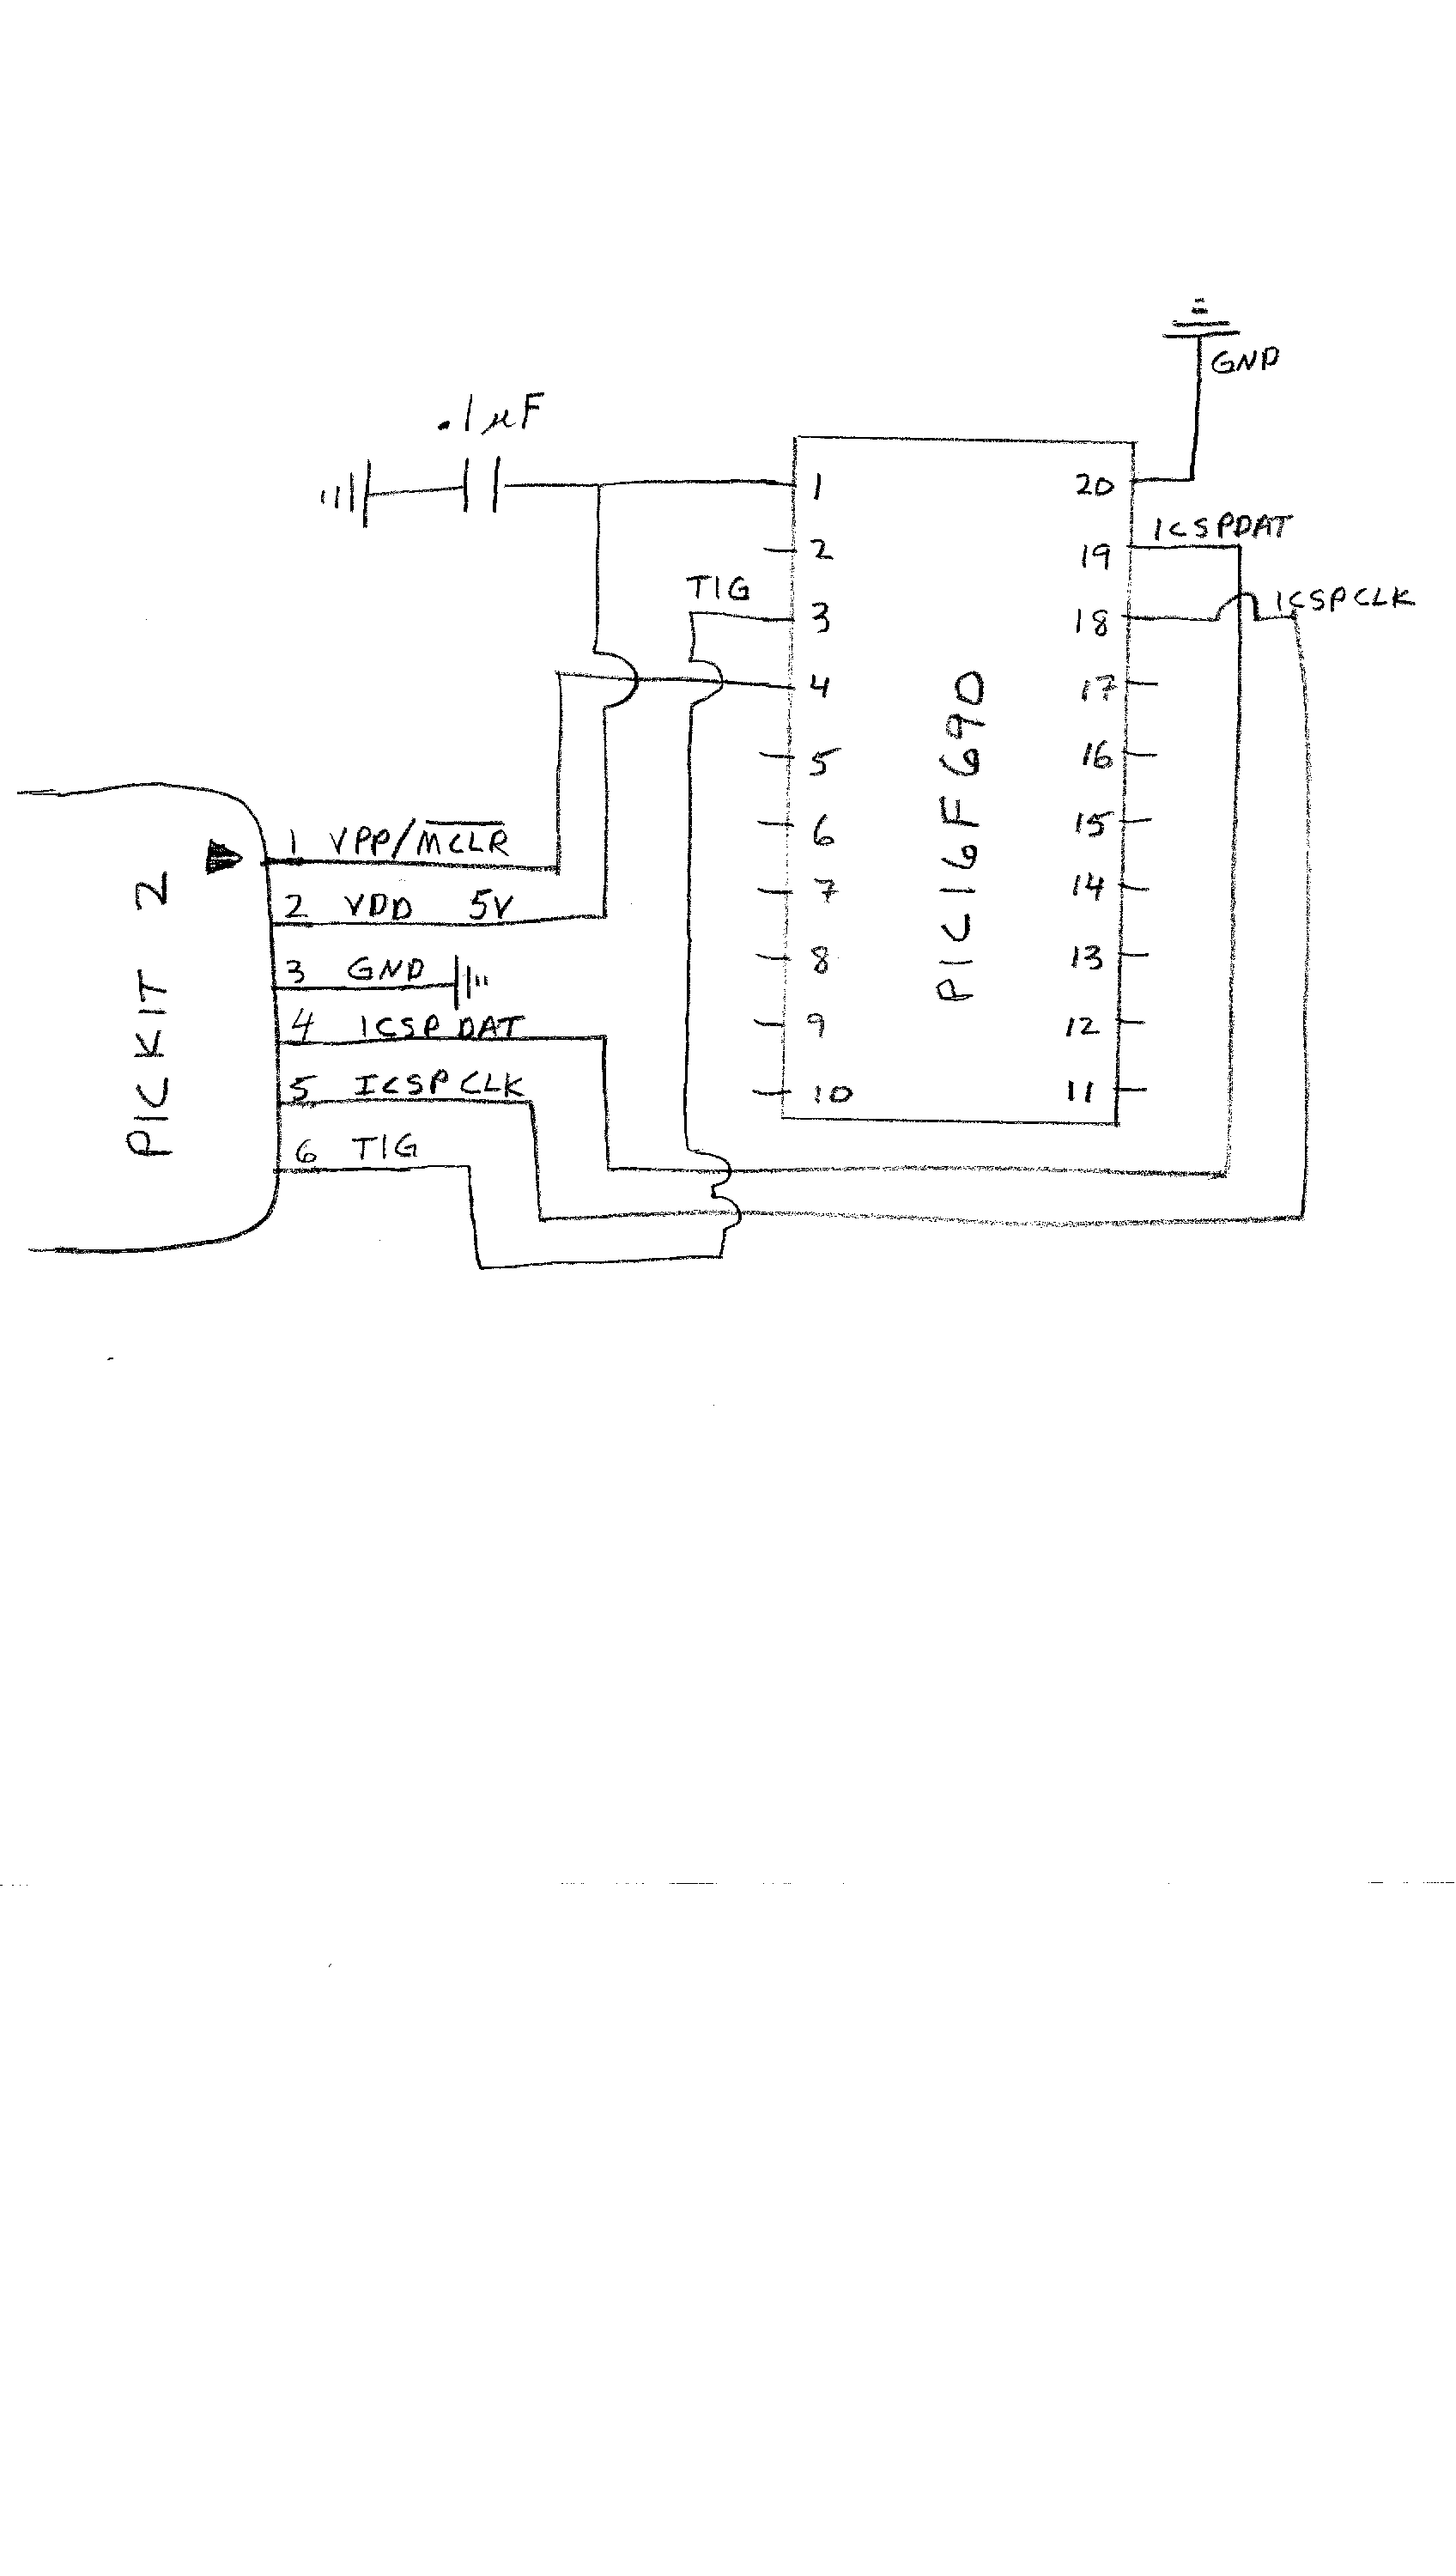 GND
.1µF
1
20
ICSPDAT
2
19
TIG
ICSPCLK
3
18
4
17
5
16
6
15
7
14
8
13
9
12
10
11
PIC16F690
PICKIT 2
1 VPP/MCLR
2 VDD 5V
3 GND
4 ICSPDAT
5 ICSPCLK
6 TIG